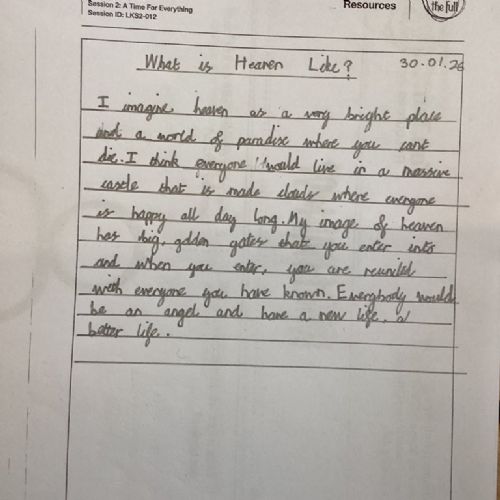 Session 2: A Time For Everything
Session ID: LKS2-012
Resources
the full
What is Heaven Like? 30.01.26
I imagine heaven as a very bright place
and a world of paradise where you cant
die. I think everyone would live in a massive
castle that is made clouds where everyone
is happy all day long. My image of heaven
has big, golden gates that you enter into
and when you enter, you are reunited
with everyone you have known. Everybody would
be an angel and have a new life, a
better life.